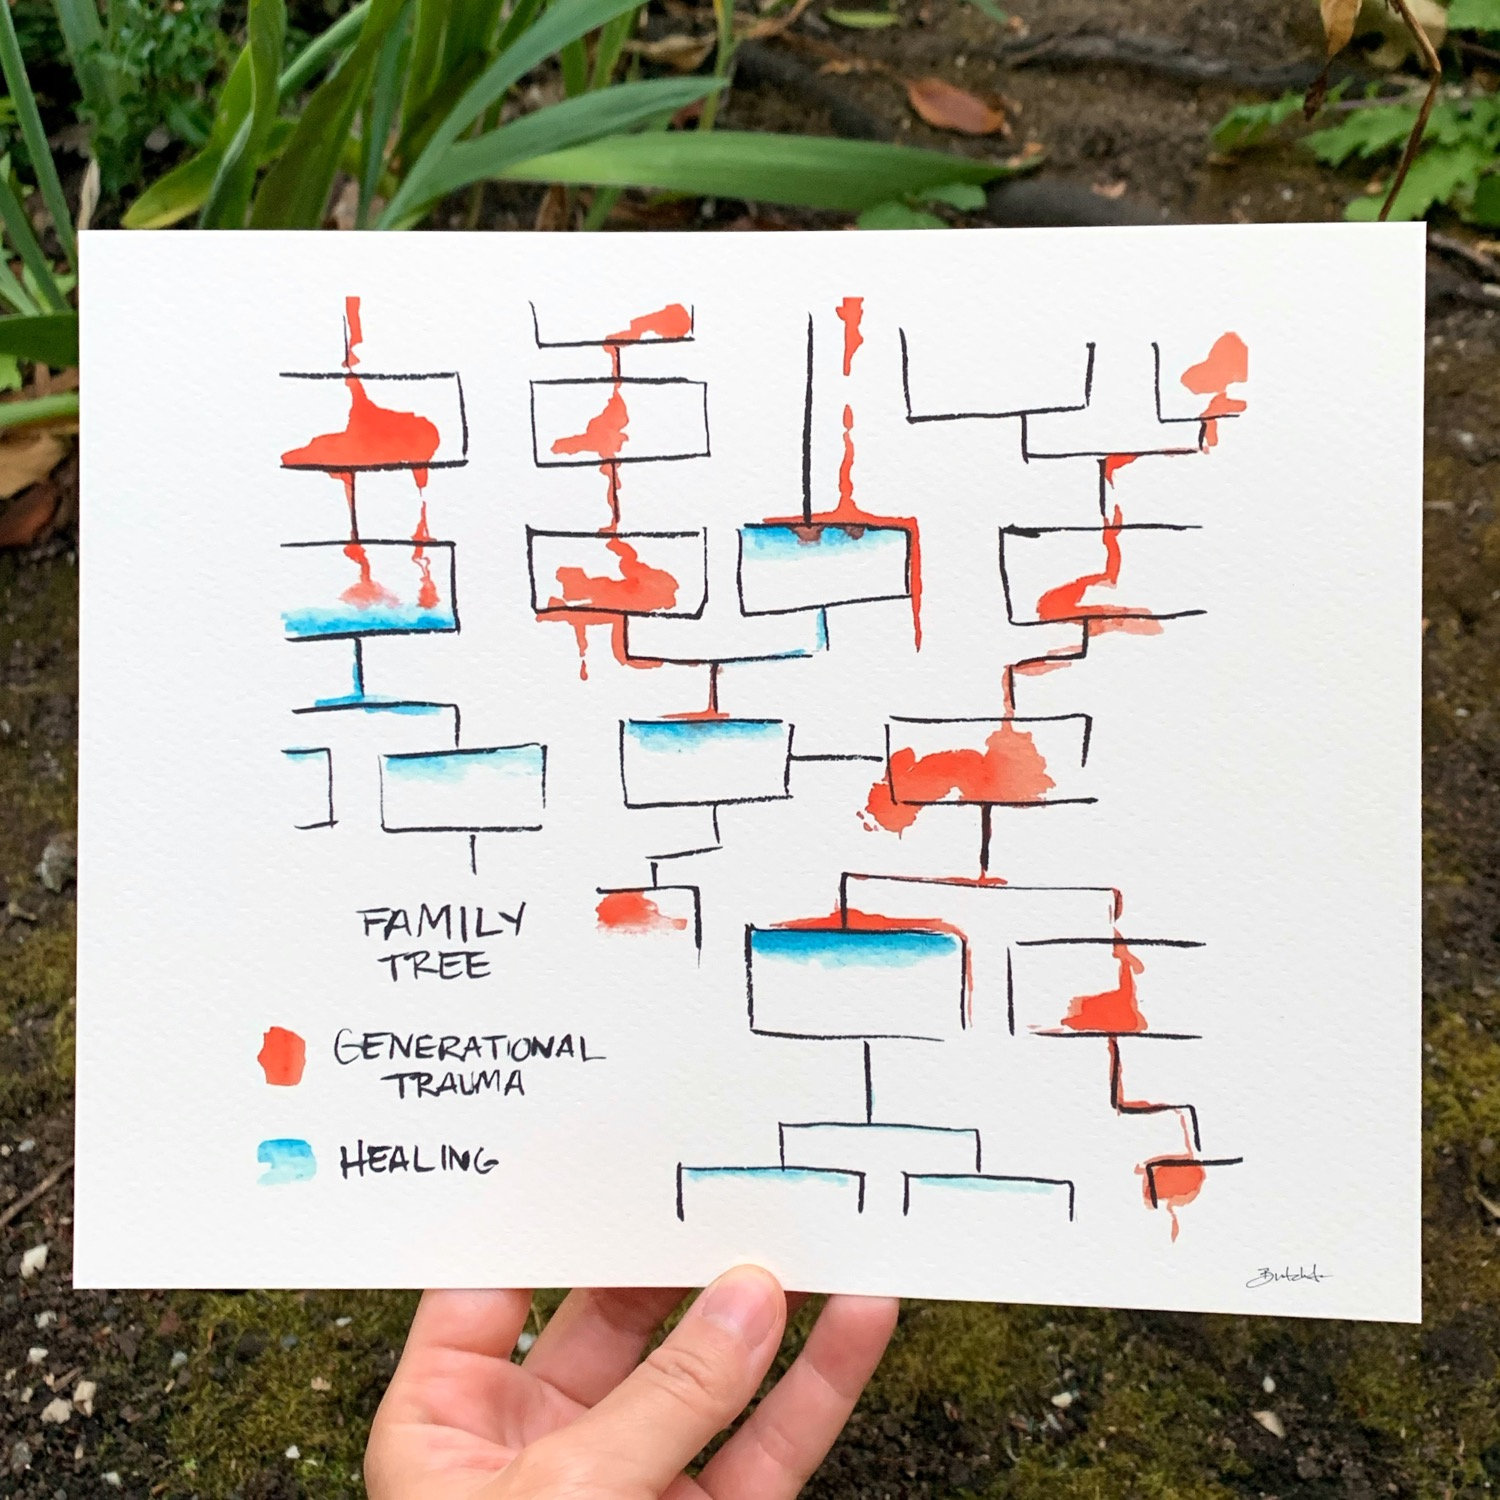 FAMILY
TREE
GENERATIONAL
TRAUMA
HEALING